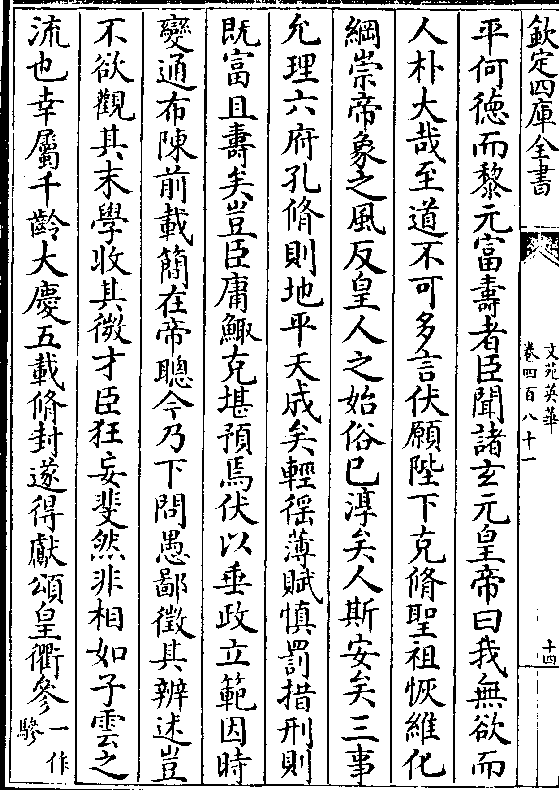 欽定四庫全書
文苑英華
卷四百八十一
十四
平何徳而黎元富壽者臣聞諸玄元皇帝曰我無欲而
人朴大哉至道不可多言伏願陛下克脩聖祖恢維化
綱崇帝象之風反皇人之始俗已淳矣人斯安矣三事
允理六府孔脩則地平天成矣輕徭薄賦慎罰措刑則
既富且壽矣豈臣庸鯫克堪預焉伏以垂政立範因時
變通布陳前載簡在帝聰今乃下問愚鄙徵其辨述豈
不欲觀其末學收其微才臣狂妄斐然非相如子雲之
流也幸屬千齡大慶五載脩封遂得獻頌皇衢參一作
驂